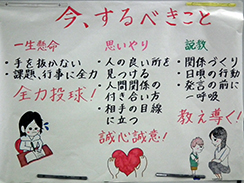 今、するべきこと
一生懸命
・手を抜かない
・課題、行事に全力
全力投球!
思いやり
・人の良い所を
見つける
・人間関係の
付き合い方
・相手の目線
に立つ
誠心誠意!
説教
・関係づくり
・日頃の行動
・発言の前に
一呼吸
教え導く!